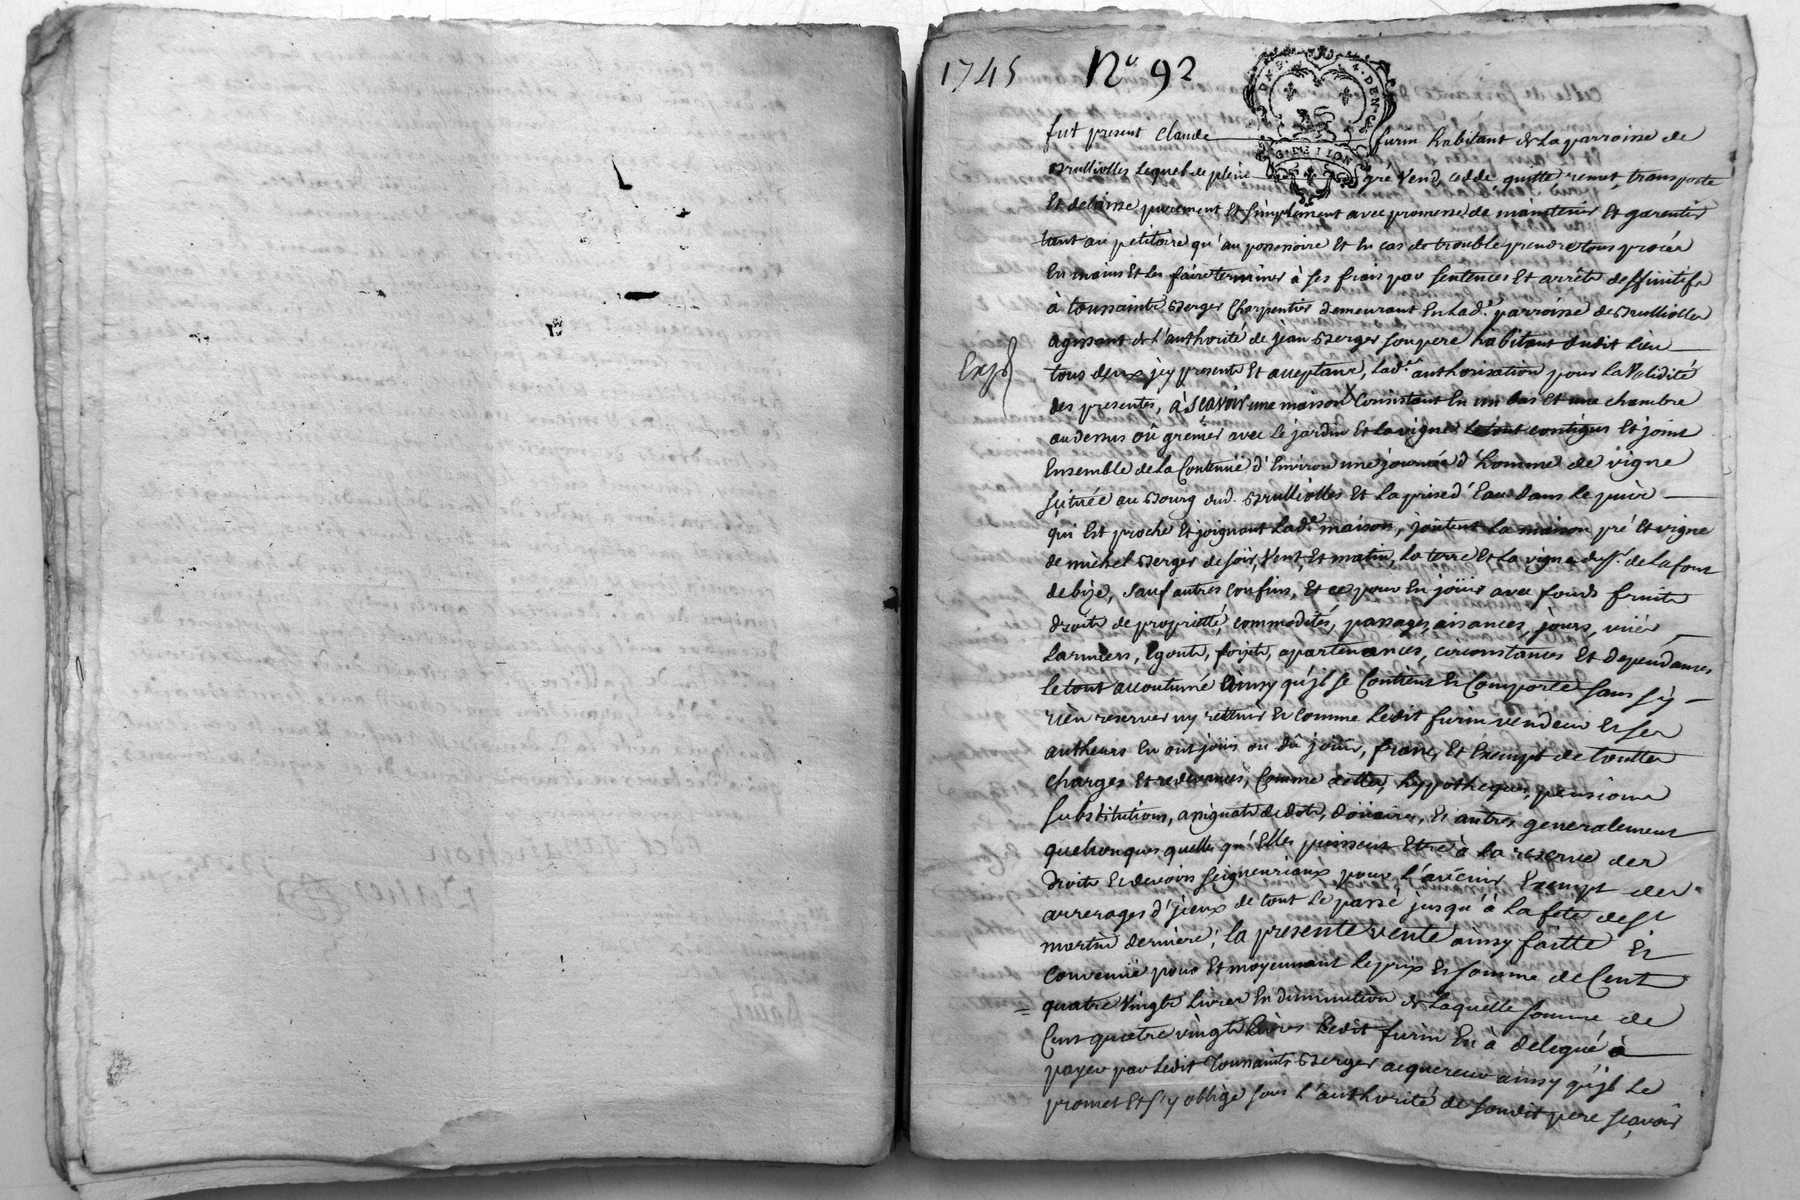 1745 No 92
DEN
G. DE LION
fut present Claude furin habitant de La parroisse de
Brulliolles Lequel de plein gré Vend, cedde, quitte, remet, transporte
Et delaisse purement Et simplement avec promesse de maintenir Et garentir
tant au petitoire qu'au possessoire Et En cas de trouble prendre tous procès
En mains Et Les faire terminer à ses frais par sentences Et arrêts deffinitifs
à toussaint Berger Charpentier demeurant En Lad.e parroisse de Brulliolles
agissant de l'authorité de jean Berger son pere habitant dudit Lieu
Exp.
tous deux jcy presents Et acceptans, Lad.e authorisation pour La Validité
des presentes, àscavoir une maison Consistant En un bas Et une chambre
au dessus où grenier avec Le jardin Et La vigne Le tout contigus Et joint
Ensemble de La Contenüe d'Environ une journée d'homme de vigne
situeé au Bourg dud. Brulliolles Et La prise d'Eau dans Le puits
qui Est proche Et joignant Lad.e maison, joutent La maison pré Et vigne
de michel Berger de soir, Vent, Et matin, La terre Et La vigne du s.r de Lafont
de bize, sauf autres confins, Et ce pour En joüir avec fonds fruits
droits de proprietté, commodités, passages, aisances, jours, vües,
Larmiers, Egouts, forjets, apartenances, circonstances Et dependances
Le tout accoutumé Ainsy qu'jl se Contient Et Comporte sans s'y
rien reserver ny rettenir Et comme Ledit furin vendeur Et ses
autheurs En ont joüis ou dû joüir, franc, Et Exempt de touttes
charges Et redevances, Comme dettes, hypotheques, pensions
substitutions, assignats de dots, doüaires, Et autres generalement
quelconques quelles qu'Elles puissent Etre à La reserve des
droits Et devoirs seigneuriaux pour l'avenir, Exempt des
arrerages d'jceux de tout Le passé jusqu'à La fete de St
martin derniere; La presente vente ainsy faitte Et
convenüe pour Et moyennant Le prix Et somme de Cent
quatre Vingts Livres En diminution de Laquelle somme de
Cent quatre vingts Livres Ledit furin En à delegué à
payer par Ledit Toussaints Berger acquereur ainsy qu'jl Le
promet Et s'y oblige sous l'authorité de sondit pere sçavoir